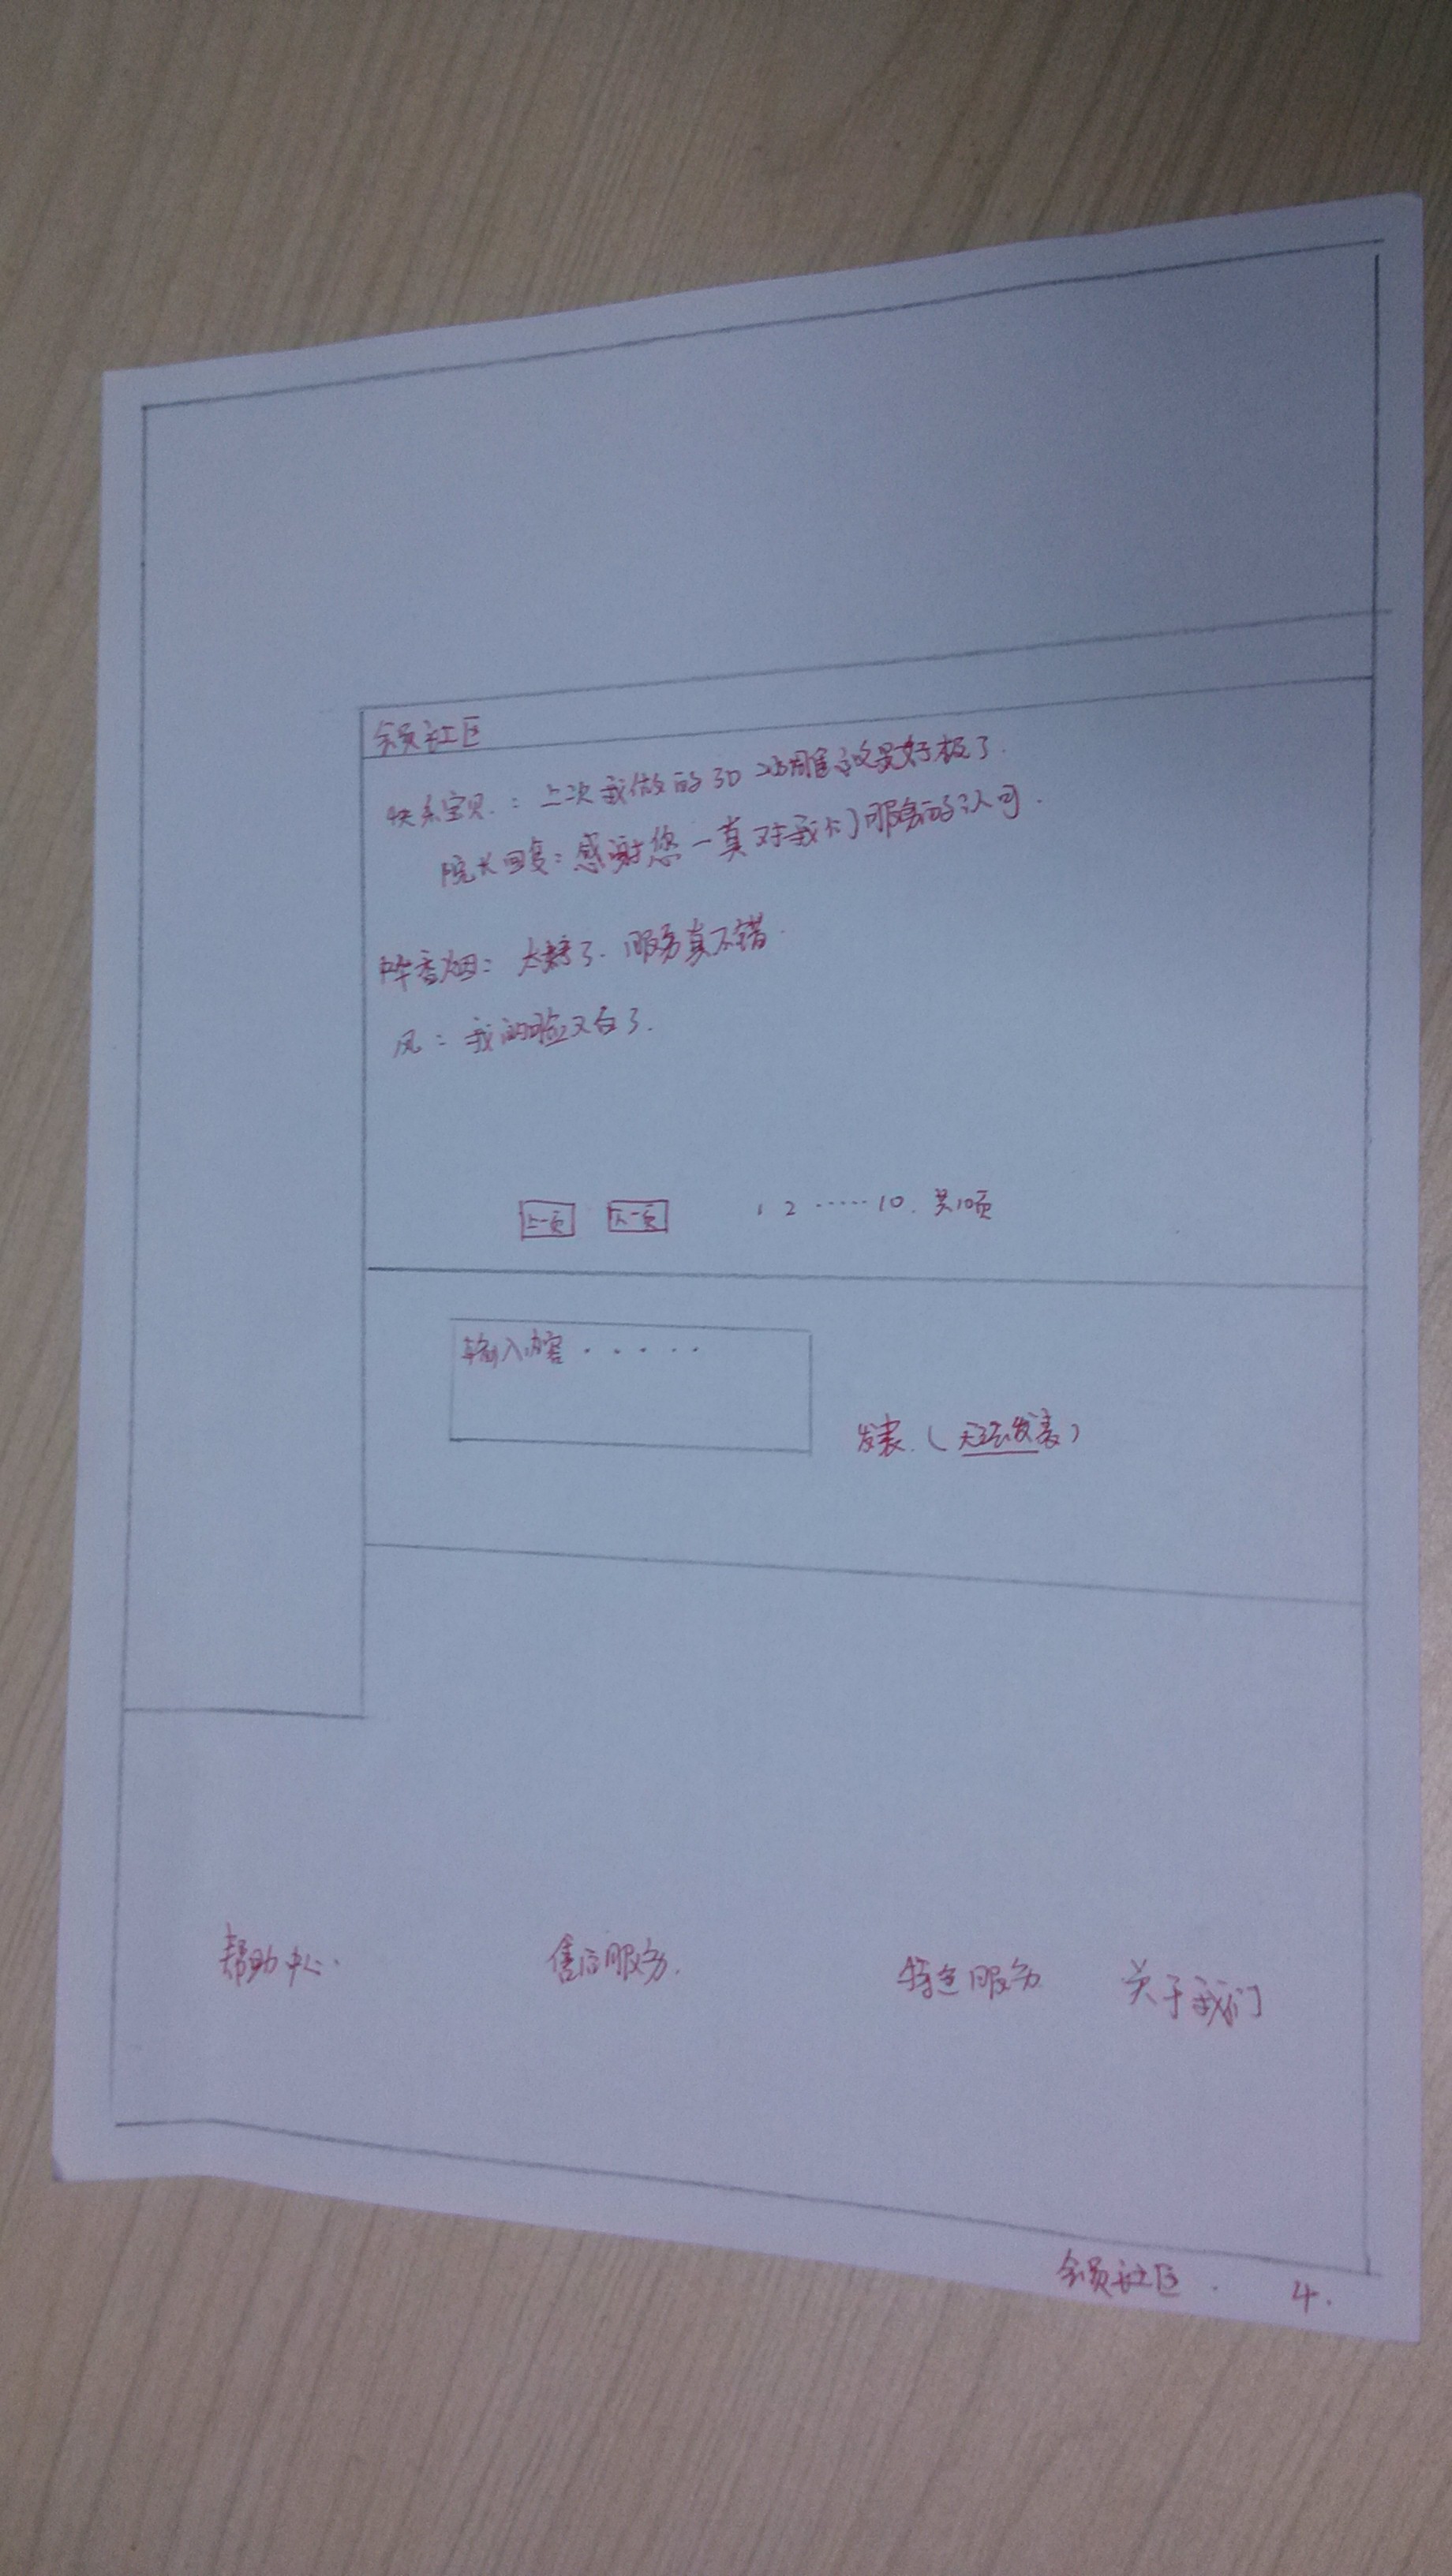 会员社区
快乐宝贝:上次我做的3D 效果好极了.
院长回复:感谢您一直对我们服务的认可.
中华香烟:太棒了.服务真不错.
风:我的脸又白了.
上一页 下一页 1 2 ······10. 共10页
输入内容 · · · · ·
发表.(无法发表)
帮助中心. 售后服务. 特色服务 关于我们
会员社区. 4.